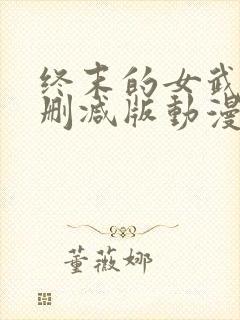 终末的女武
删减版動漫
董薇娜